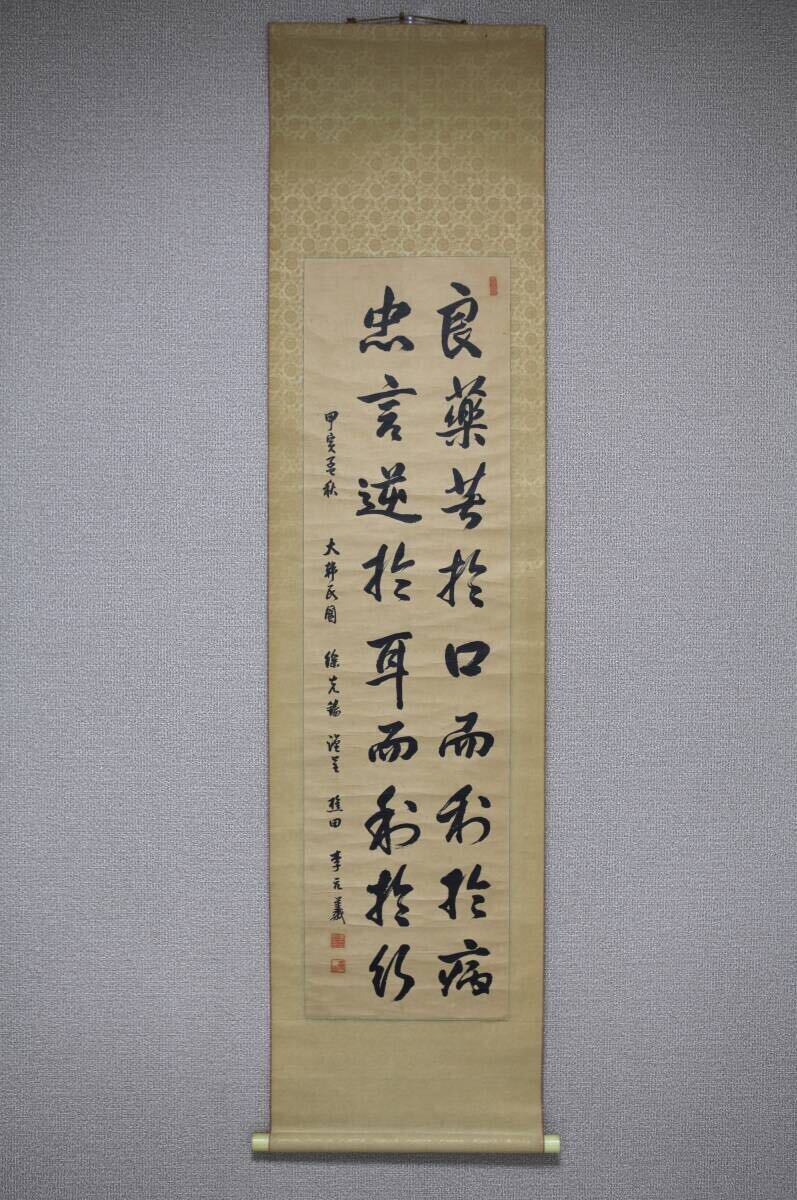 良藥苦於口而利於病
忠言逆於耳而利於行
甲寅 秋 大韓民國 徐克 謹呈 田 李元義